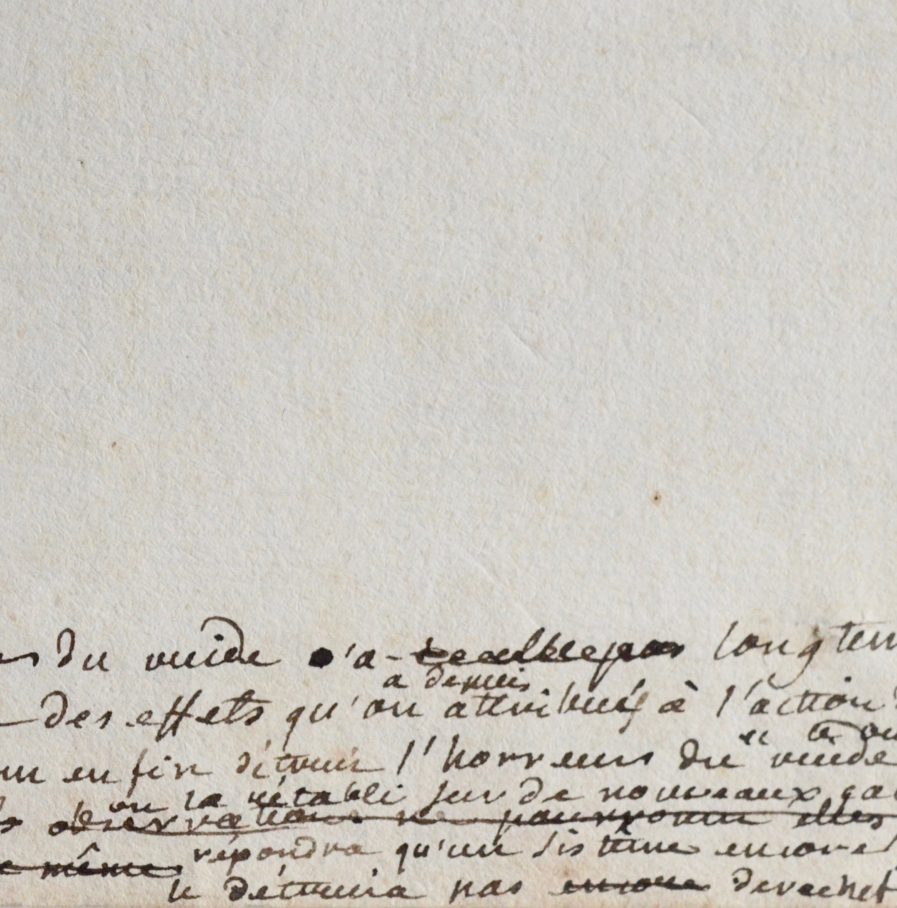 du vuide n'a longtem
a depuis
des effets qu'on attribués à l'action
enfin détruir l'horreur du vuide
on la rétabli sur de nouveaux
observations ne pourront elles
même répondra qu'un sistême encore
le détruira pas encore derechef